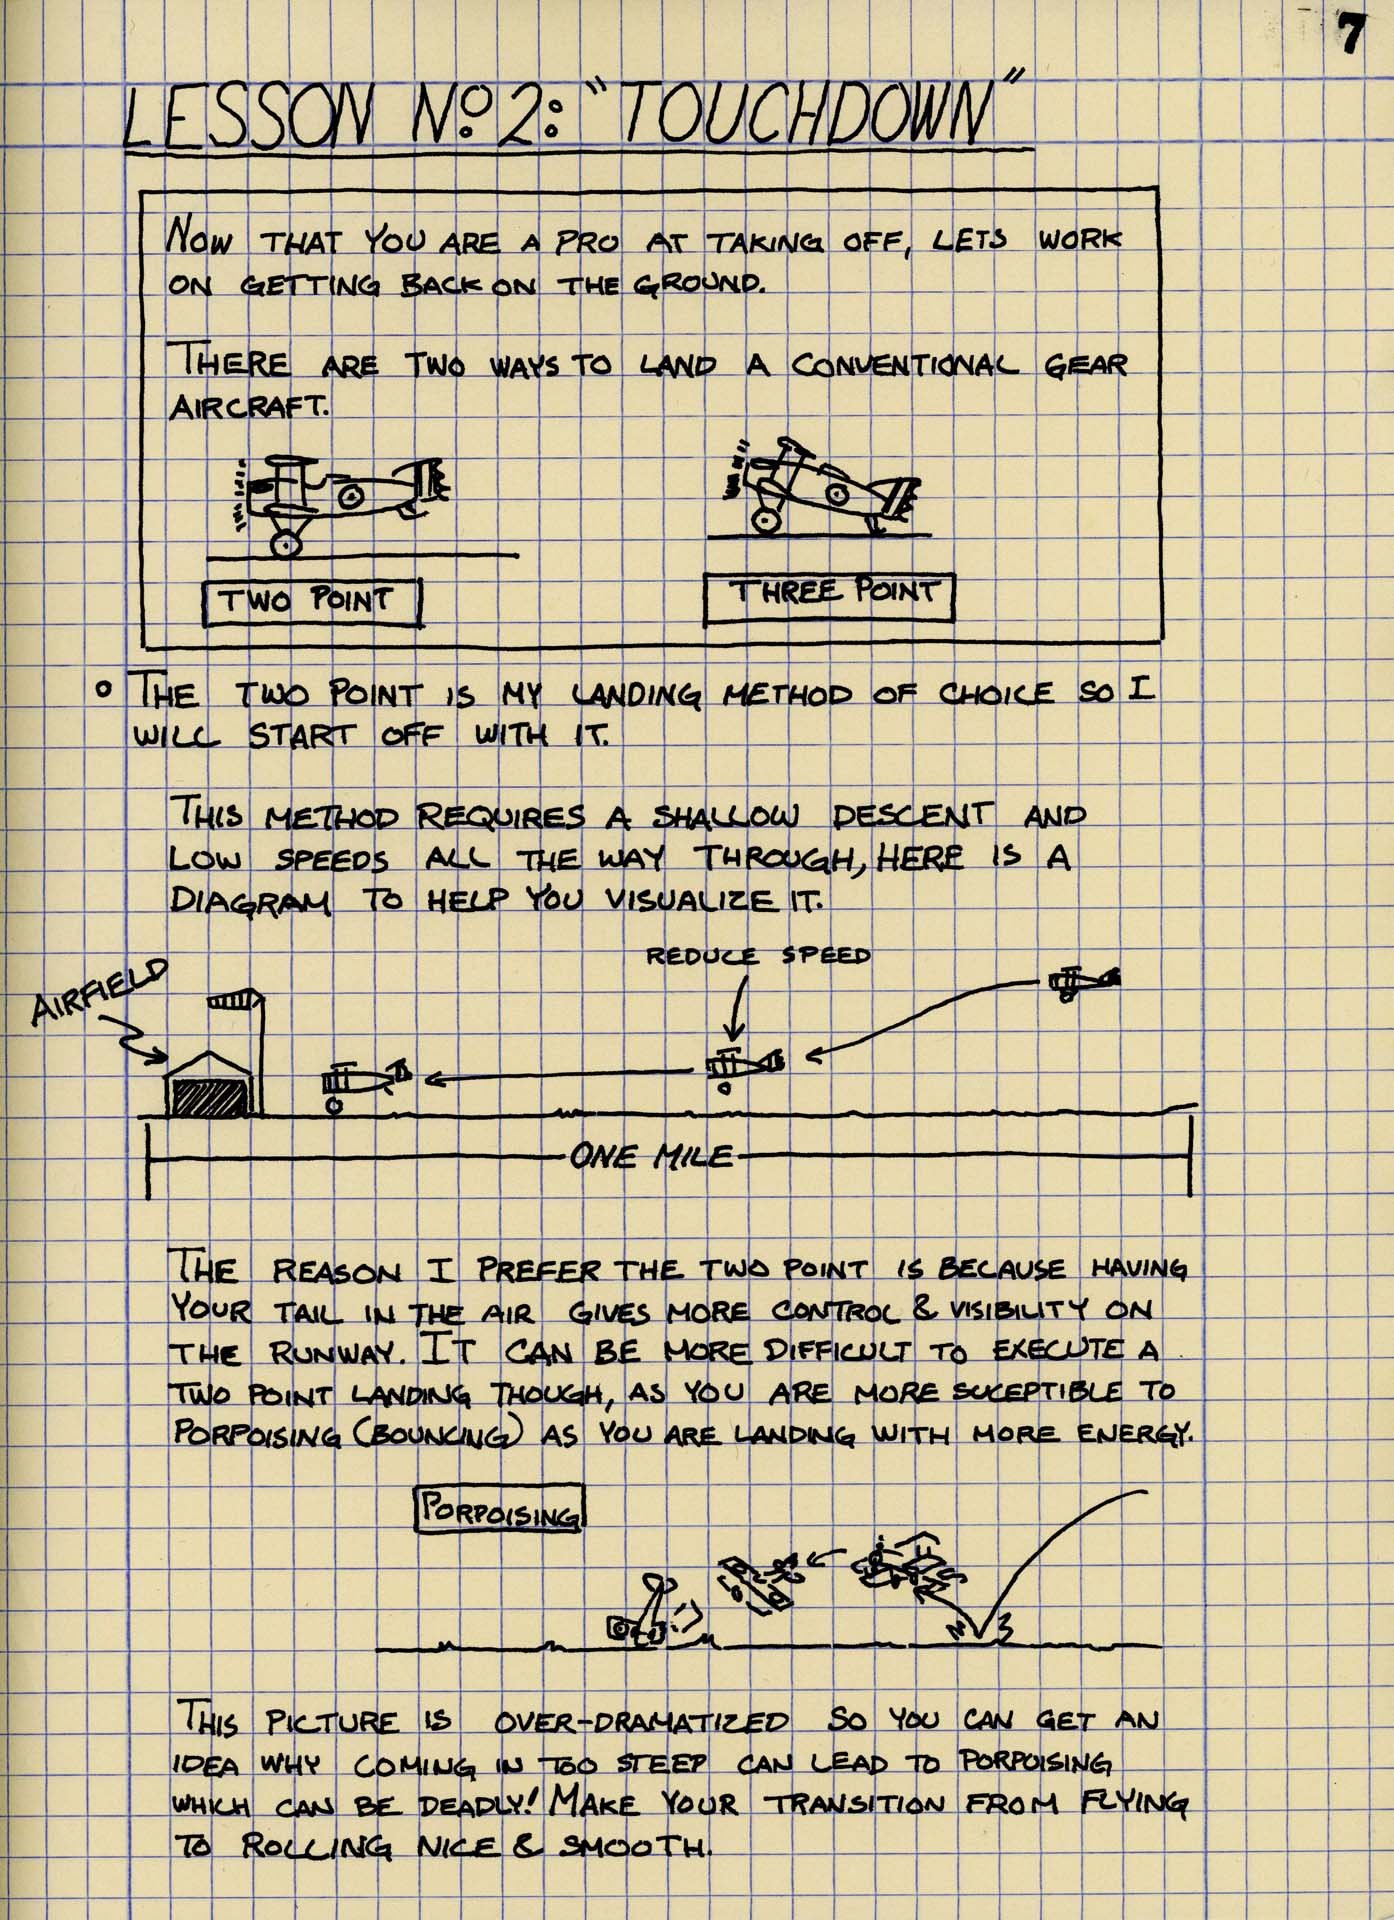 7
LESSON No. 2: "TOUCHDOWN"
NOW THAT YOU ARE A PRO AT TAKING OFF, LETS WORK
ON GETTING BACK ON THE GROUND.
THERE ARE TWO WAYS TO LAND A CONVENTIONAL GEAR
AIRCRAFT.
TWO POINT
THREE POINT
THE TWO POINT IS MY LANDING METHOD OF CHOICE SO I
WILL START OFF WITH IT.
THIS METHOD REQUIRES A SHALLOW DESCENT AND
LOW SPEEDS ALL THE WAY THROUGH, HERE IS A
DIAGRAM TO HELP YOU VISUALIZE IT.
REDUCE SPEED
AIRFIELD
ONE MILE
THE REASON I PREFER THE TWO POINT IS BECAUSE HAVING
YOUR TAIL IN THE AIR GIVES MORE CONTROL & VISIBILITY ON
THE RUNWAY. IT CAN BE MORE DIFFICULT TO EXECUTE A
TWO POINT LANDING THOUGH, AS YOU ARE MORE SUCEPTIBLE TO
PORPOISING (BOUNCING) AS YOU ARE LANDING WITH MORE ENERGY.
PORPOISING
THIS PICTURE IS OVER-DRAMATIZED SO YOU CAN GET AN
IDEA WHY COMING IN TOO STEEP CAN LEAD TO PORPOISING
WHICH CAN BE DEADLY! MAKE YOUR TRANSITION FROM FLYING
TO ROLLING NICE & SMOOTH.